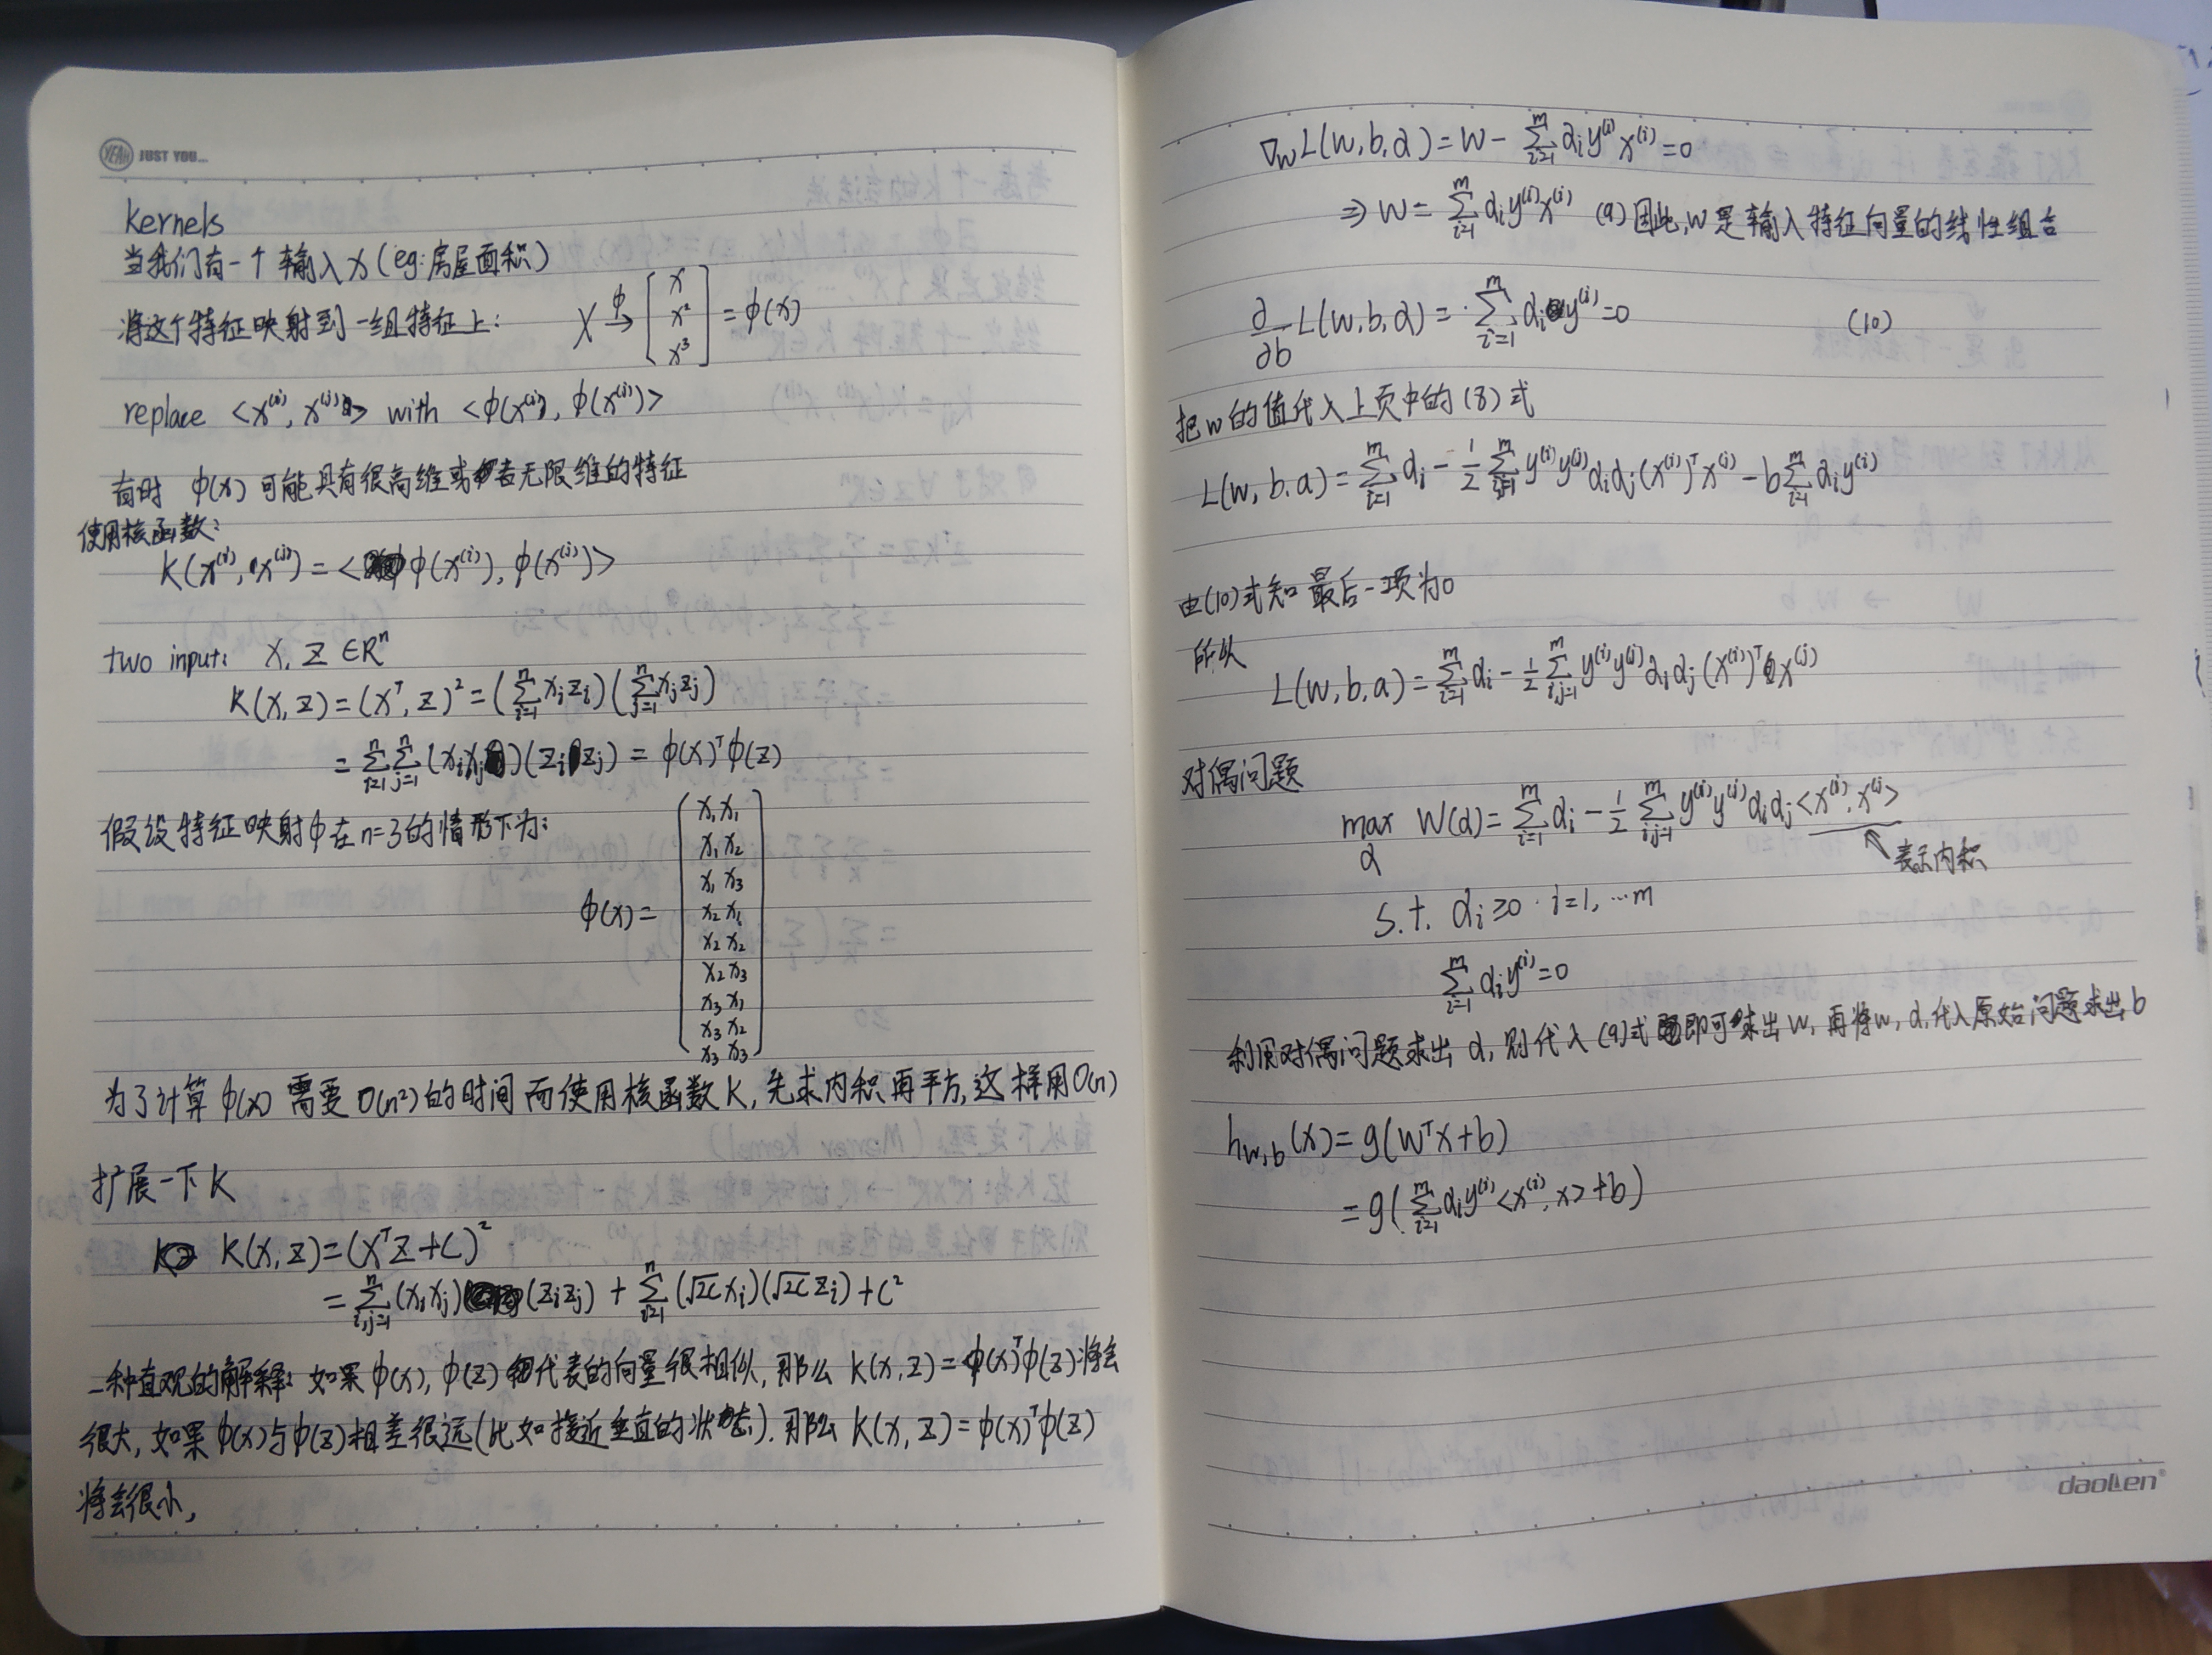 YEAH JUST YOU...
kernels
当我们有一个输入x(eg:房屋面积)
将这个特征映射到一组特征上: X →ϕ [x x² x³] = ϕ(x)
replace <x⁽ⁱ⁾, x⁽ʲ⁾> with <ϕ(x⁽ⁱ⁾), ϕ(x⁽ʲ⁾)>
有时 ϕ(x) 可能具有很高维或者无限维的特征
使用核函数:
K(x⁽ⁱ⁾, x⁽ʲ⁾) = <ϕ(x⁽ⁱ⁾), ϕ(x⁽ʲ⁾)>
two input: X, Z ∈Rⁿ
K(X,Z) = (Xᵀ, Z)² = (∑ⁿᵢ₌₁ xᵢzᵢ)(∑ⁿⱼ₌₁ xⱼzⱼ)
= ∑ⁿᵢ₌₁∑ⁿⱼ₌₁ (xᵢxⱼ)(zᵢzⱼ) = ϕ(x)ᵀϕ(z)
假设特征映射ϕ在n=3的情形下为:
ϕ(x) =
x₁x₁
x₁x₂
x₁x₃
x₂x₁
x₂x₂
x₂x₃
x₃x₁
x₃x₂
x₃x₃
为了计算 ϕ(x) 需要 O(n²) 的时间 而使用核函数K, 先求内积再平方, 这样用O(n)
扩展一下K
K(X,Z) = (XᵀZ+C)²
= ∑ⁿᵢ,ⱼ₌₁ (xᵢxⱼ)(zᵢzⱼ) + ∑ⁿᵢ₌₁ (√2C xᵢ)(√2C zᵢ) + C²
一种直观的解释: 如果 ϕ(x), ϕ(z) 代表的向量很相似, 那么 K(x,z) = ϕ(x)ᵀϕ(z) 将会
很大, 如果 ϕ(x)与ϕ(z)相差很远(比如接近垂直的状态). 那么 K(x,z) = ϕ(x)ᵀϕ(z)
将会很小,
∇wL(w,b,α) = w - ∑ᵐᵢ₌₁ αᵢy⁽ⁱ⁾x⁽ⁱ⁾ = 0
⇒ w = ∑ᵐᵢ₌₁ αᵢy⁽ⁱ⁾x⁽ⁱ⁾ (9) 因此,w是输入特征向量的线性组合
∂/∂b L(w,b,α) = ∑ᵐᵢ₌₁ αᵢy⁽ⁱ⁾ = 0 (10)
把w的值代入上页中的(8)式
L(w,b,a) = ∑ᵐᵢ₌₁ αᵢ - 1/2 ∑ᵐᵢ,ⱼ₌₁ y⁽ⁱ⁾y⁽ʲ⁾αᵢαⱼ(x⁽ⁱ⁾)ᵀx⁽ʲ⁾ - b∑ᵐᵢ₌₁ αᵢy⁽ⁱ⁾
由(10)式知 最后一项为0
所以
L(w,b,a) = ∑ᵐᵢ₌₁ αᵢ - 1/2 ∑ᵐᵢ,ⱼ₌₁ y⁽ⁱ⁾y⁽ʲ⁾αᵢαⱼ(x⁽ⁱ⁾)ᵀx⁽ʲ⁾
对偶问题
max α W(α) = ∑ᵐᵢ₌₁ αᵢ - 1/2 ∑ᵐᵢ,ⱼ₌₁ y⁽ⁱ⁾y⁽ʲ⁾αᵢαⱼ<x⁽ⁱ⁾, x⁽ʲ⁾>
表示内积
s.t. αᵢ ≥ 0 i=1, …m
∑ᵐᵢ₌₁ αᵢy⁽ⁱ⁾ = 0
利用对偶问题求出 α, 则代入(9)式即可求出w, 再将w, α, 代入原始问题求出b
h_w,b(x) = g(wᵀx+b)
= g(∑ᵐᵢ₌₁ αᵢy⁽ⁱ⁾<x⁽ⁱ⁾, x> + b)
daoLen